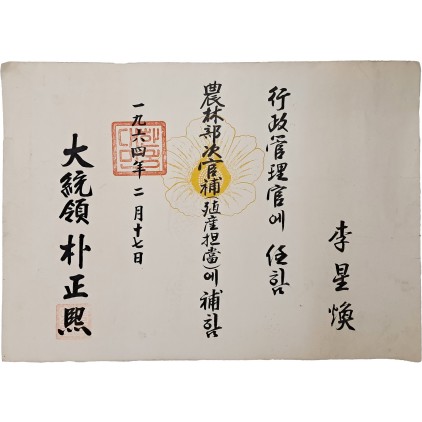 李星煥
行政管理官에 任함
農林部次官補(殖産担當)에 補함
一九六四年 二月十七日
大統領 朴正熙